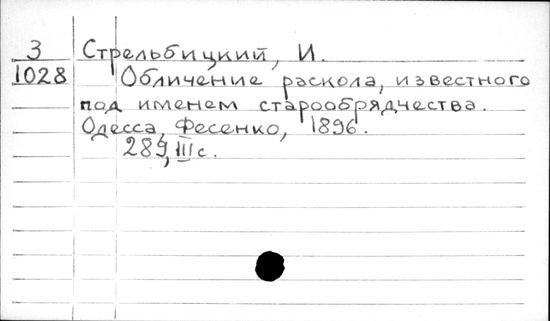 3 Стрельбицкий, И.
1028 Обличение раскола, известного
под именем старообрядчества.
Одесса, Фесенко, 1896.
289, III с.